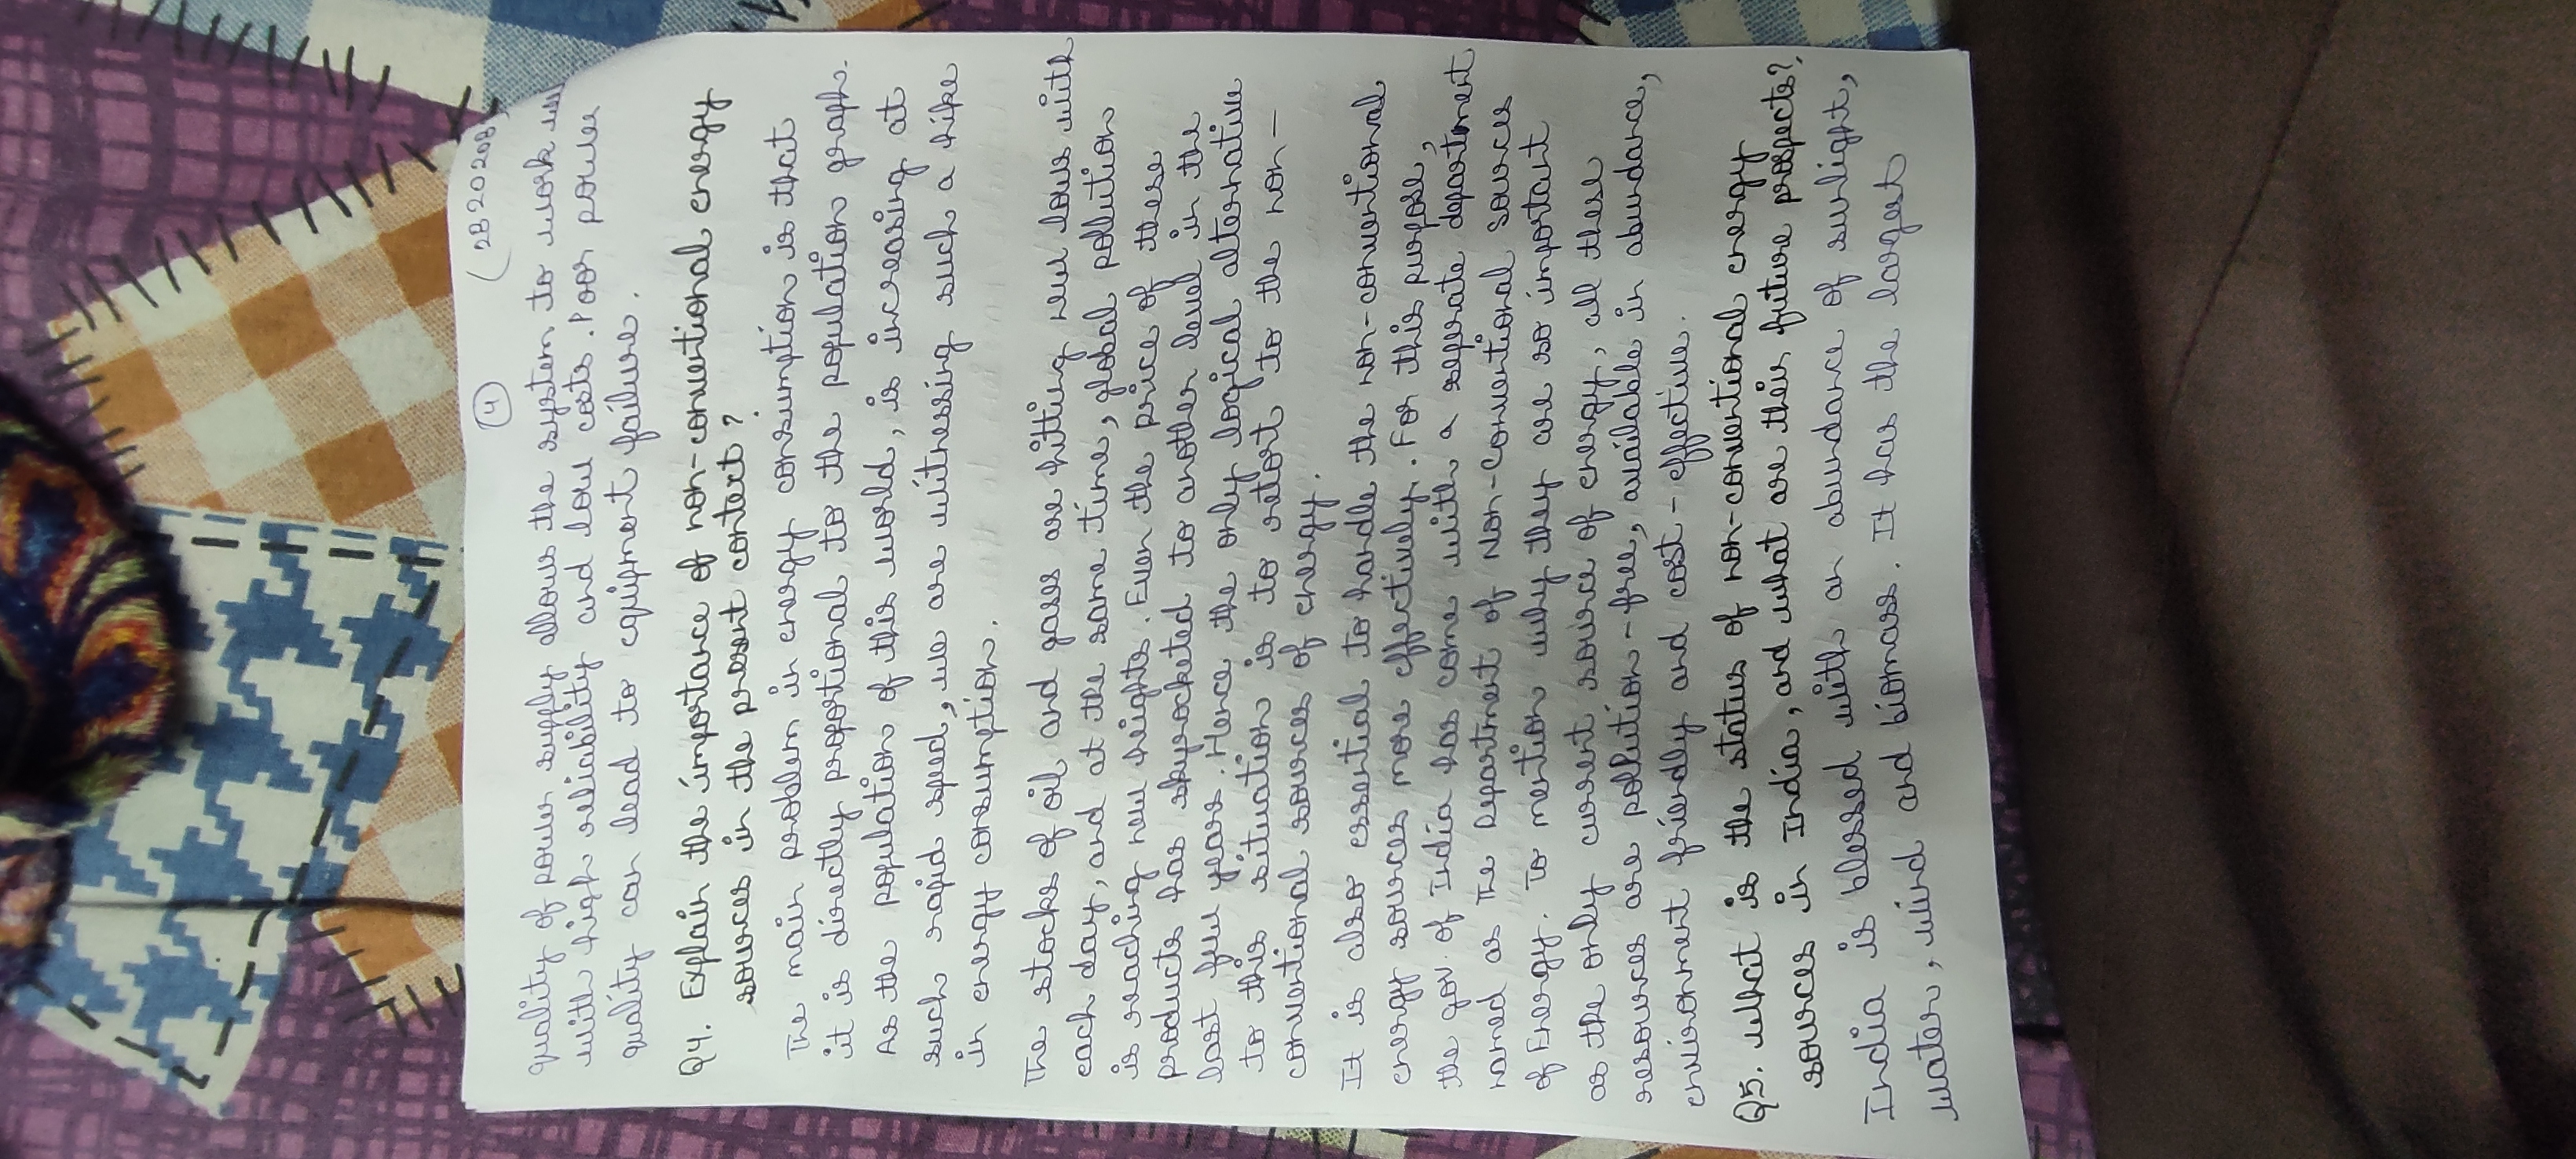 4 (2820208)
quality of power supply allows the system to work
with high reliability and low costs. Poor power
quality can lead to equipment failure.
Q4. Explain the importance of non-conventional energy
sources in the present context?
The main problem in energy consumption is that
it is directly proportional to the population graph.
As the population of this world, is increasing at
such rapid speed, we are witnessing such a hike
in energy consumption.
The stocks of oil and gases are hitting new lows with
each day, and at the same time, global pollution
is reaching new heights. Even the price of these
products has skyrocketed to another level in the
last few years. Hence the only logical alternative
to this situation is to retort to the non-
conventional sources of energy.
It is also essential to handle the non-conventional
energy sources more effectively. For this purpose,
the gov. of India has come with a seperate department
named as The Department of Non-Conventional Sources
of Energy. To mention why they are so important
as the only current source of energy, all these
resources are pollution-free, available in abundance,
environment friendly and cost-effective.
Q5. What is the status of non-conventional energy
sources in India, and what are their future prospects?
India is blessed with an abundance of sunlight,
water, wind and biomass. It has the largest